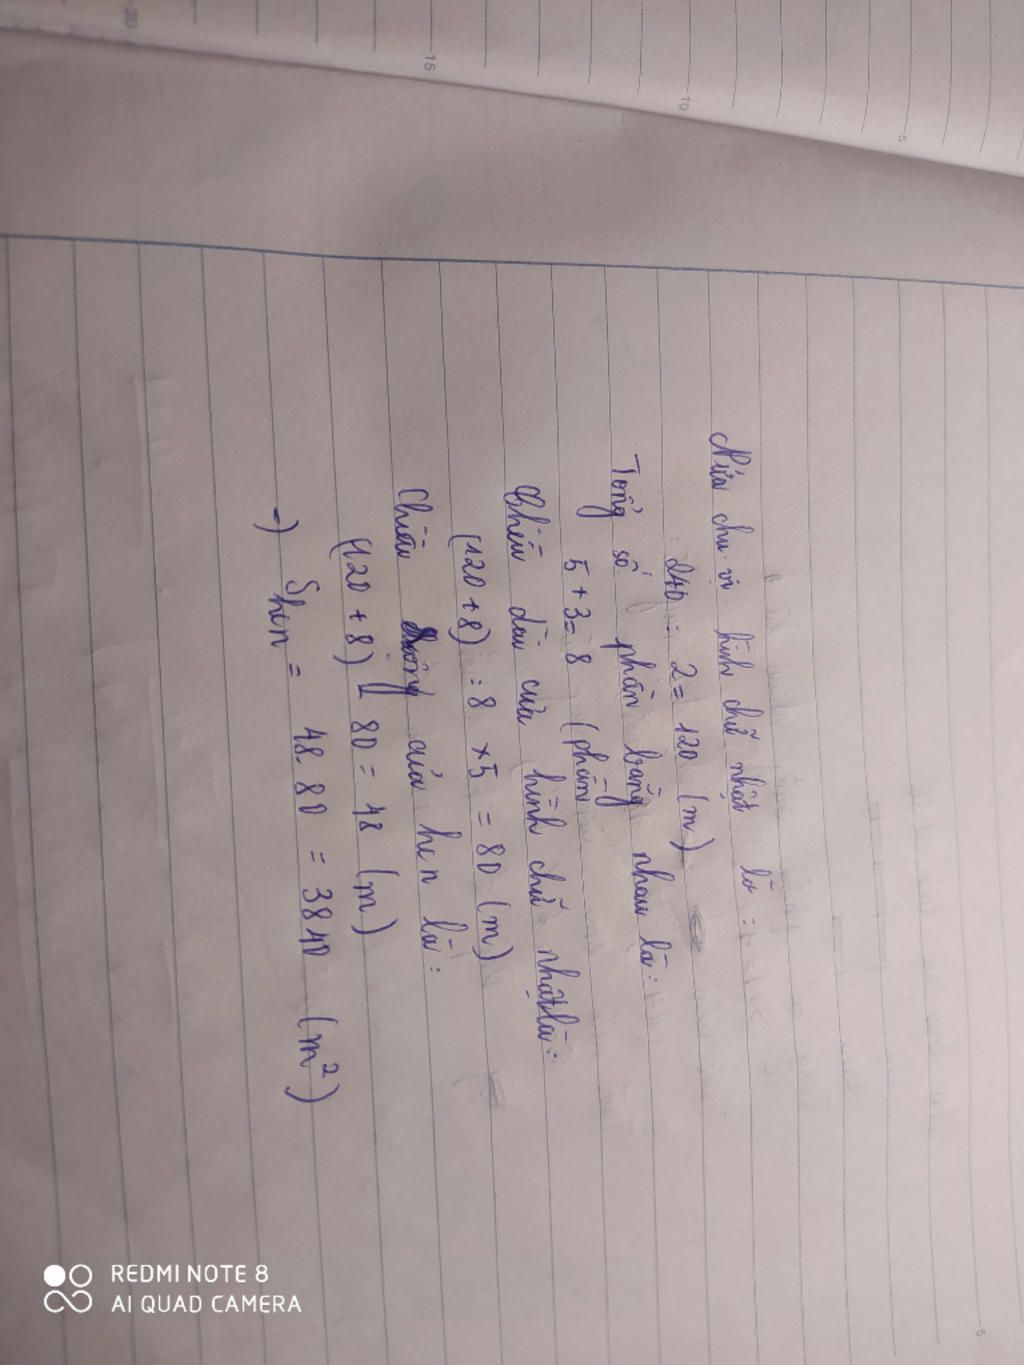 Nửa chu vi hình chữ nhật là :
240 : 2 = 120 (m)
Tổng số phần bằng nhau là :
5 + 3 = 8 (phần)
Chiều dài của hình chữ nhật là :
(120 + 8) : 8 × 5 = 80 (m)
Chiều rộng của hcn là :
(120 + 8) - 80 = 48 (m)
→ Shcn = 48.80 = 3840 (m²)
20
15
10
5
5
REDMI NOTE 8
AI QUAD CAMERA